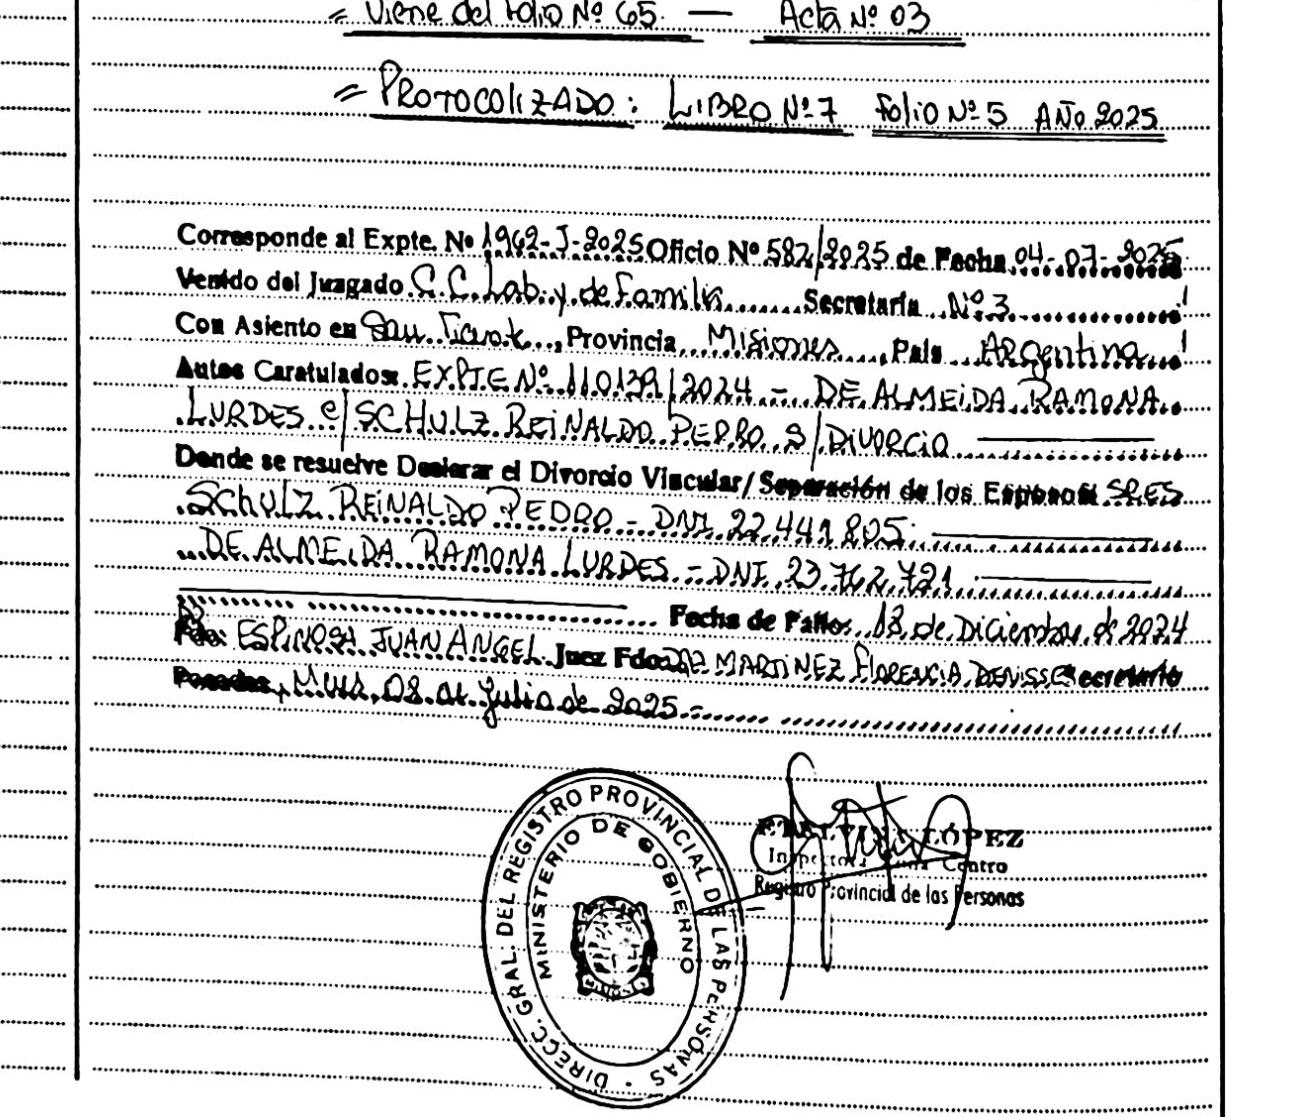 = Viene del folio Nº 65. — Acta Nº 03
= PROTOCOLIZADO: LIBRO Nº 7 folio Nº 5 AÑO 2025
Corresponde al Expte. Nº 1962-J-2025 Oficio Nº 582/2025 de Fecha 04-07-2025
Venido del Juzgado C.C. Lab. y de Familia Secretaría Nº 3
Con Asiento en San Vicente, Provincia Misiones, País ARgentina
Autos Caratulados: EXPTE Nº 110139/2024 - DE ALMEIDA RAMONA
LURDES c/ SCHULZ REINALDO PEDRO S/ DIVORCIO
Donde se resuelve Declarar el Divorcio Vincular/Separación de los Esposos: SRES
SCHULZ REINALDO PEDRO - DNI 22.441.805
DE ALMEIDA RAMONA LURDES - DNI 23.762.721
Fecha de Fallo: 18 de Diciembre de 2024
Fdo: ESPINOSA JUAN ANGEL Juez Fdo: MARTINEZ FLORENCIA DENISSE Secretario
Posadas, Mnes, 08 de Julio de 2025 -
DIRECC. GRAL. DEL REGISTRO PROVINCIAL DE LAS PERSONAS
MINISTERIO DE GOBIERNO
LÓPEZ
Inspectora Zona Centro
Registro Provincial de las Personas